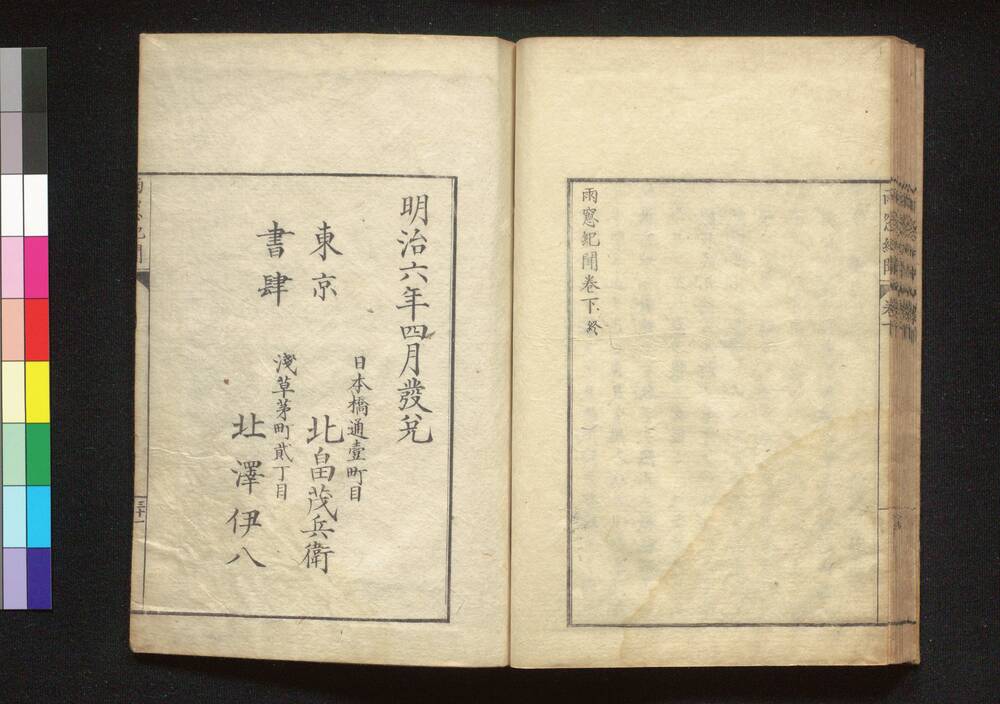 雨窓紀聞卷下終
明治六年四月發兌
東京
書肆
日本橋通壹町目
北畠茂兵衛
淺草茅町貳丁目
北澤伊八